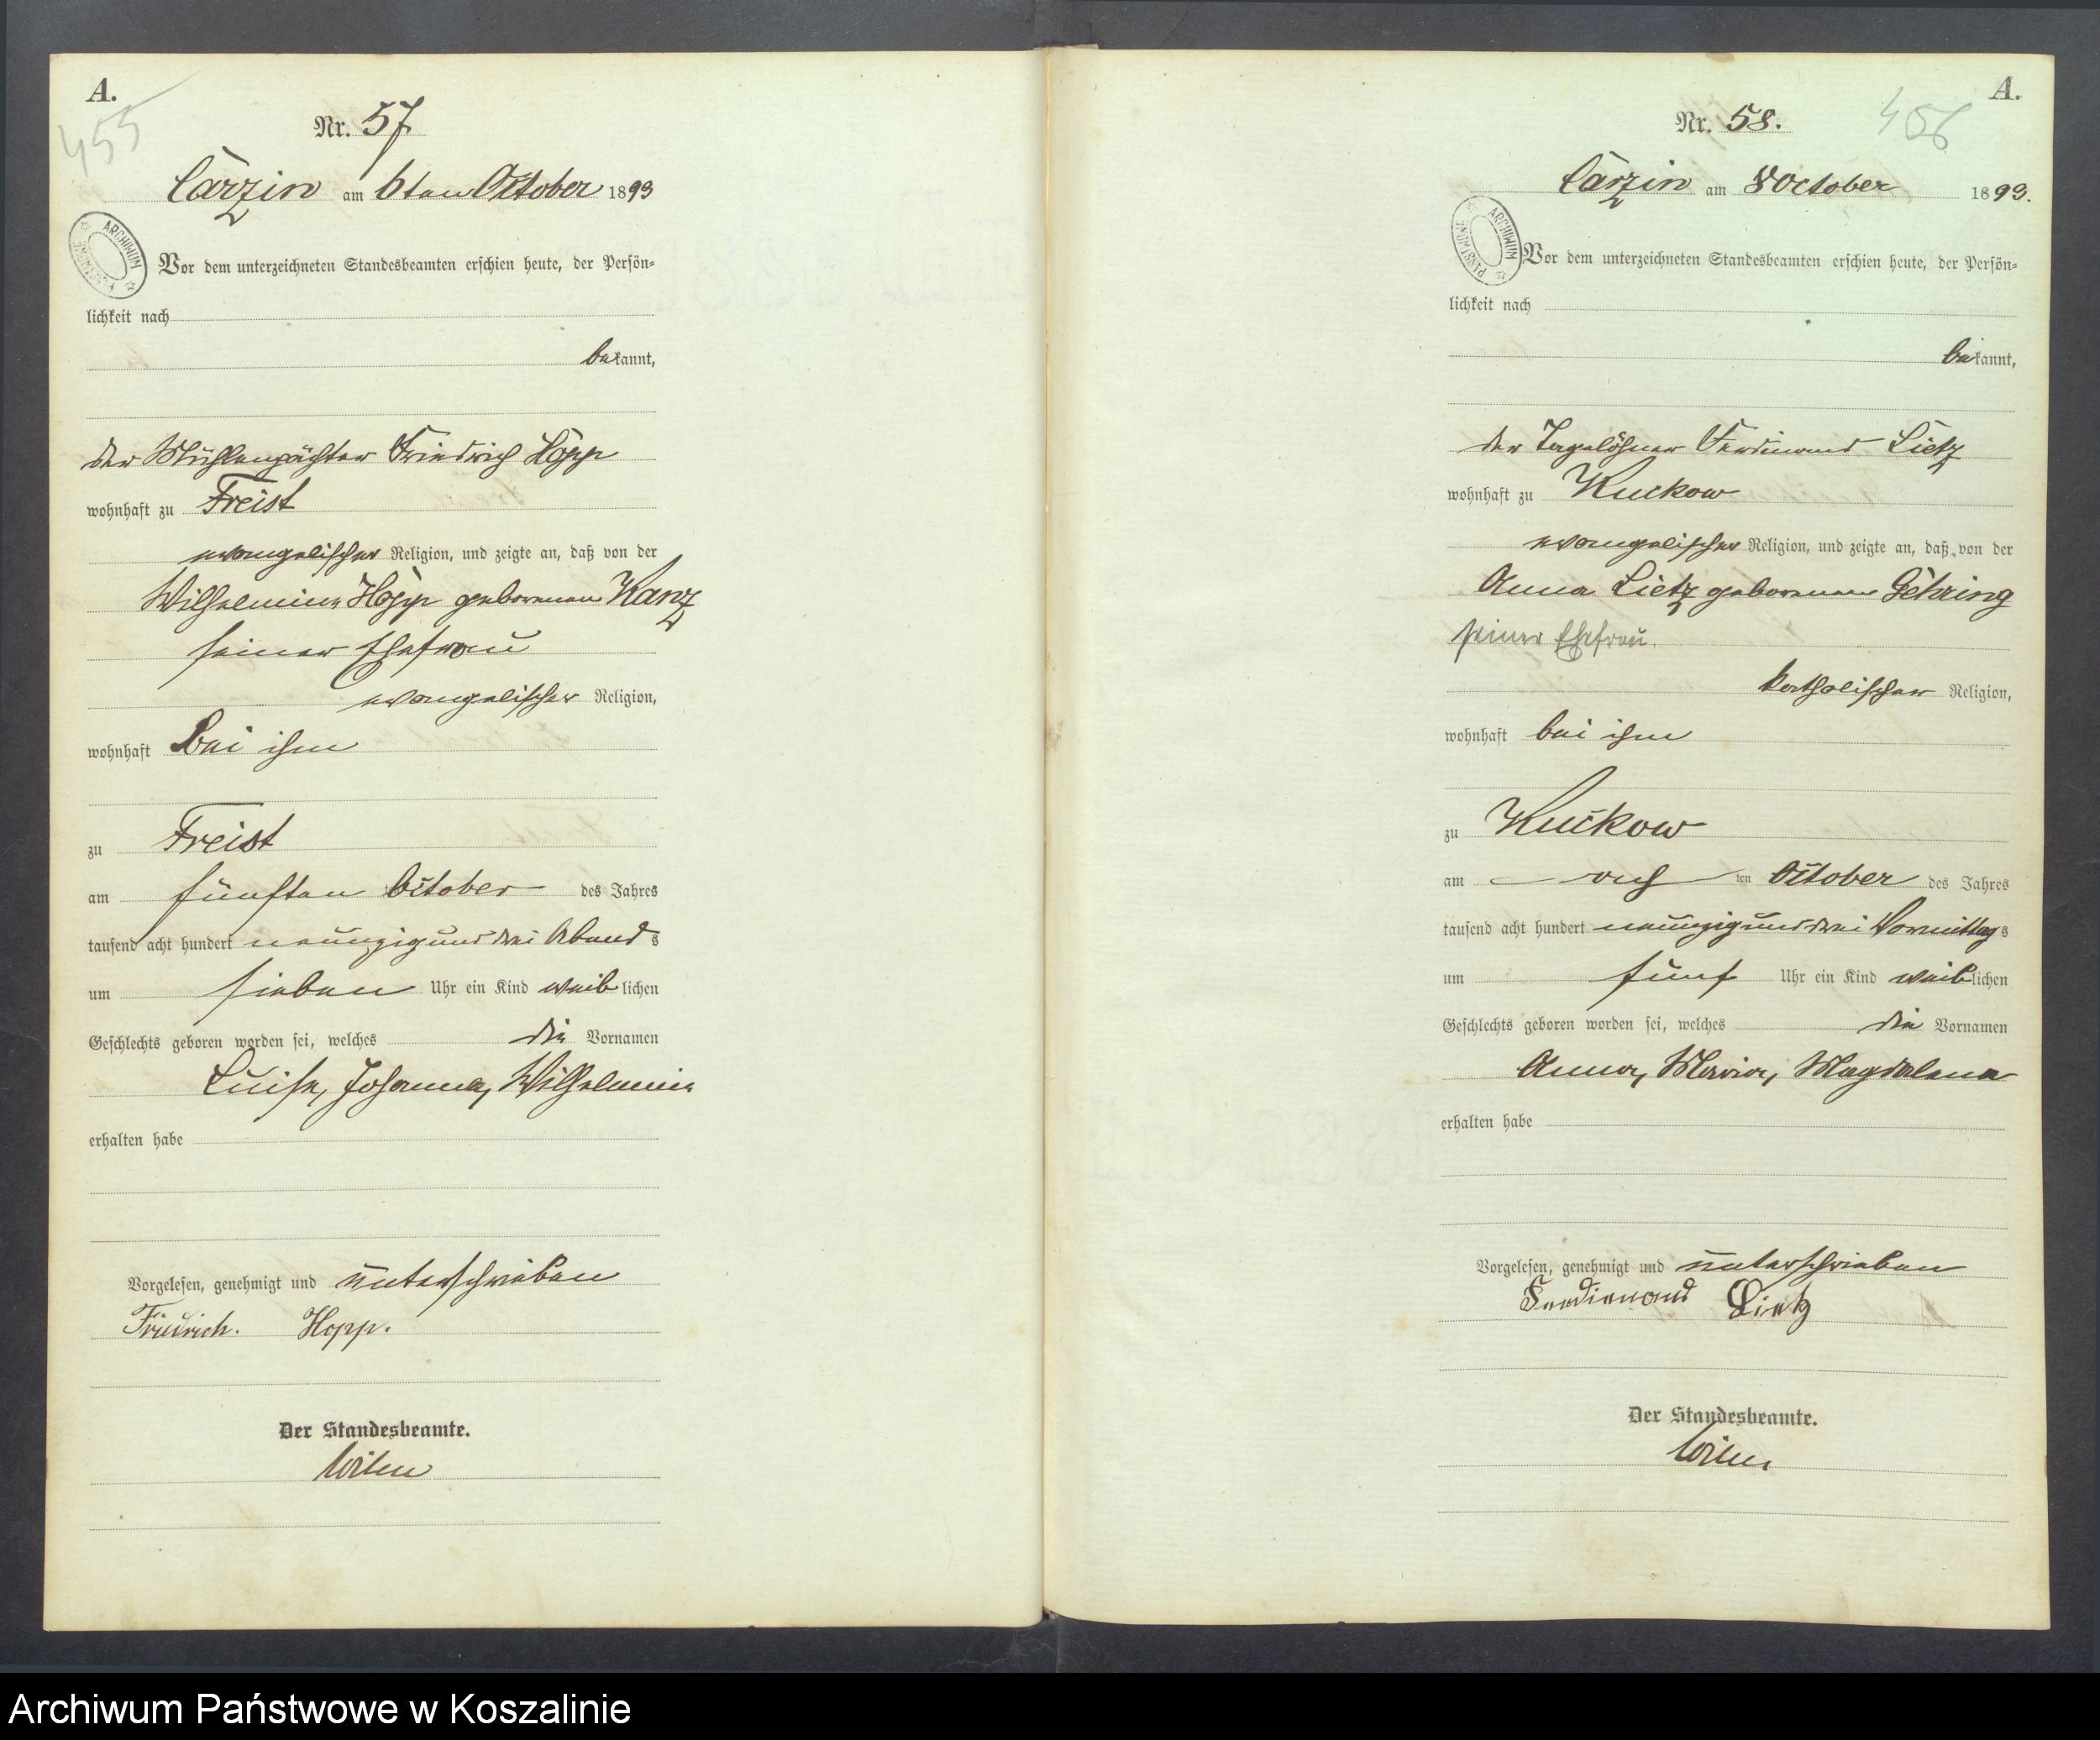 A.
455
Nr. 57
Carzin am 6ten October 1893
ARCHIWUM PAŃSTWOWE
Vor dem unterzeichneten Standesbeamten erschien heute, der Persön-
lichkeit nach
bekannt,
der Mühlenpächter Friedrich Hopp
wohnhaft zu Freist
evangelischer Religion, und zeigte an, daß von der
Wilhelmine Hopp geborenen Kanz
seiner Ehefrau
evangelischer Religion,
wohnhaft bei ihm
zu Freist
am fünften October des Jahres
tausend acht hundert neunzig und drei Abends
um sieben Uhr ein Kind weiblichen
Geschlechts geboren worden sei, welches die Vornamen
Luise, Johanna, Wilhelmine
erhalten habe
Vorgelesen, genehmigt und unterschrieben
Friedrich. Hopp.
Der Standesbeamte.
A.
456
Nr. 58.
Carzin am 8 October 1893.
ARCHIWUM PAŃSTWOWE
Vor dem unterzeichneten Standesbeamten erschien heute, der Persön-
lichkeit nach
bekannt,
der Tagelöhner Ferdinand Lietz
wohnhaft zu Kuckow
evangelischer Religion, und zeigte an, daß von der
Anna Lietz geborenen Gehring
seiner Ehefrau.
katholischer Religion,
wohnhaft bei ihm
zu Kuckow
am ten October des Jahres
tausend acht hundert neunzig und drei Vormittags
um fünf Uhr ein Kind weiblichen
Geschlechts geboren worden sei, welches die Vornamen
Anna, Maria, Magdalena
erhalten habe
Vorgelesen, genehmigt und unterschrieben
Ferdinand Lietz
Der Standesbeamte.
Archiwum Państwowe w Koszalinie